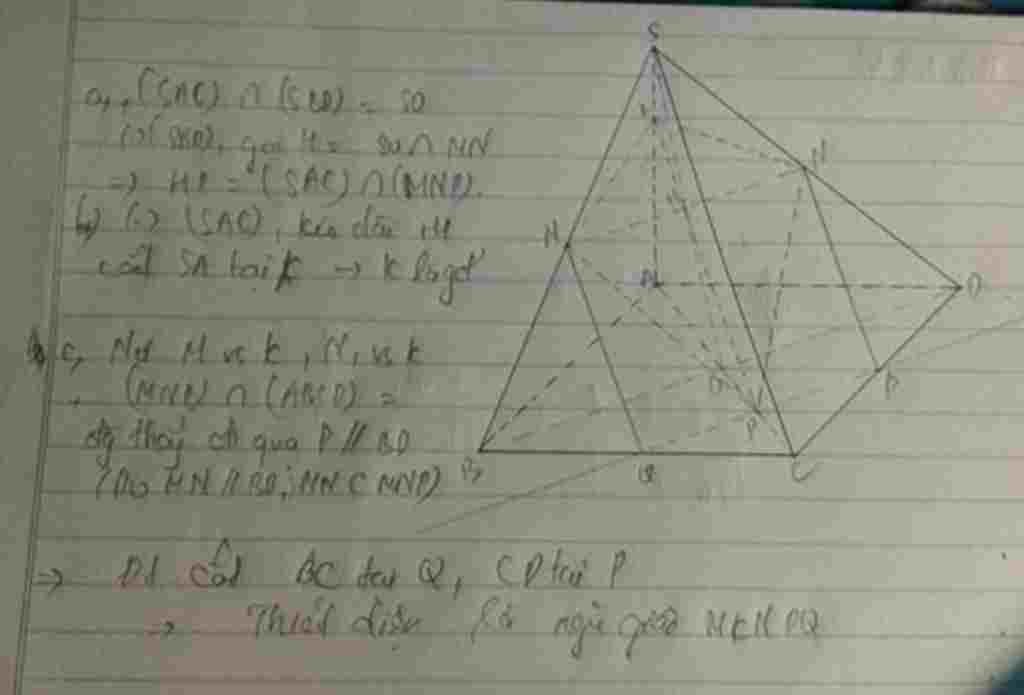 a, (SAC) ∩ (SBD) = SO
(-) (SBD), gọi H = SO ∩ MN
=> HP = (SAC) ∩ (MNP).
b) (-) (SAC), kéo dài
cắt SA tại K → K là gđ
c, Nối M vs K, N, vs K
(MNP) ∩ (ABCD) =
đg thẳng đi qua P // BD
(Do MN // BD; MN ⊂ MNP)
=> cắt BC tại Q, CD tại P
=> Thiết diện là ngũ giác MKNPQ
S
N
M
A
D
O
P
P
B
Q
C